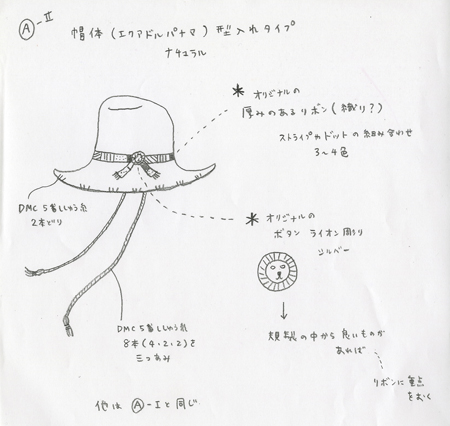 Ⓐ-Ⅱ
帽体(エクアドルパナマ)型入れタイプ
ナチュラル
* オリジナルの
厚みのあるリボン(織り?)
ストライプかドットの組み合わせ
3〜4色
DMC5番ししゅう糸
2本どり
* オリジナルの
ボタン ライオン彫り
シルバー
↓
既製の中から良いものが
あれば
リボンに重点
をおく
DMC5番ししゅう糸
8本(4・2・2)を
三つあみ
他はⒶ-Ⅰと同じ